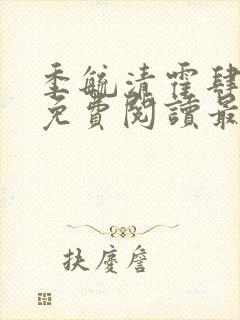 季毓清霍肆
免費閱讀最
扶慶詹